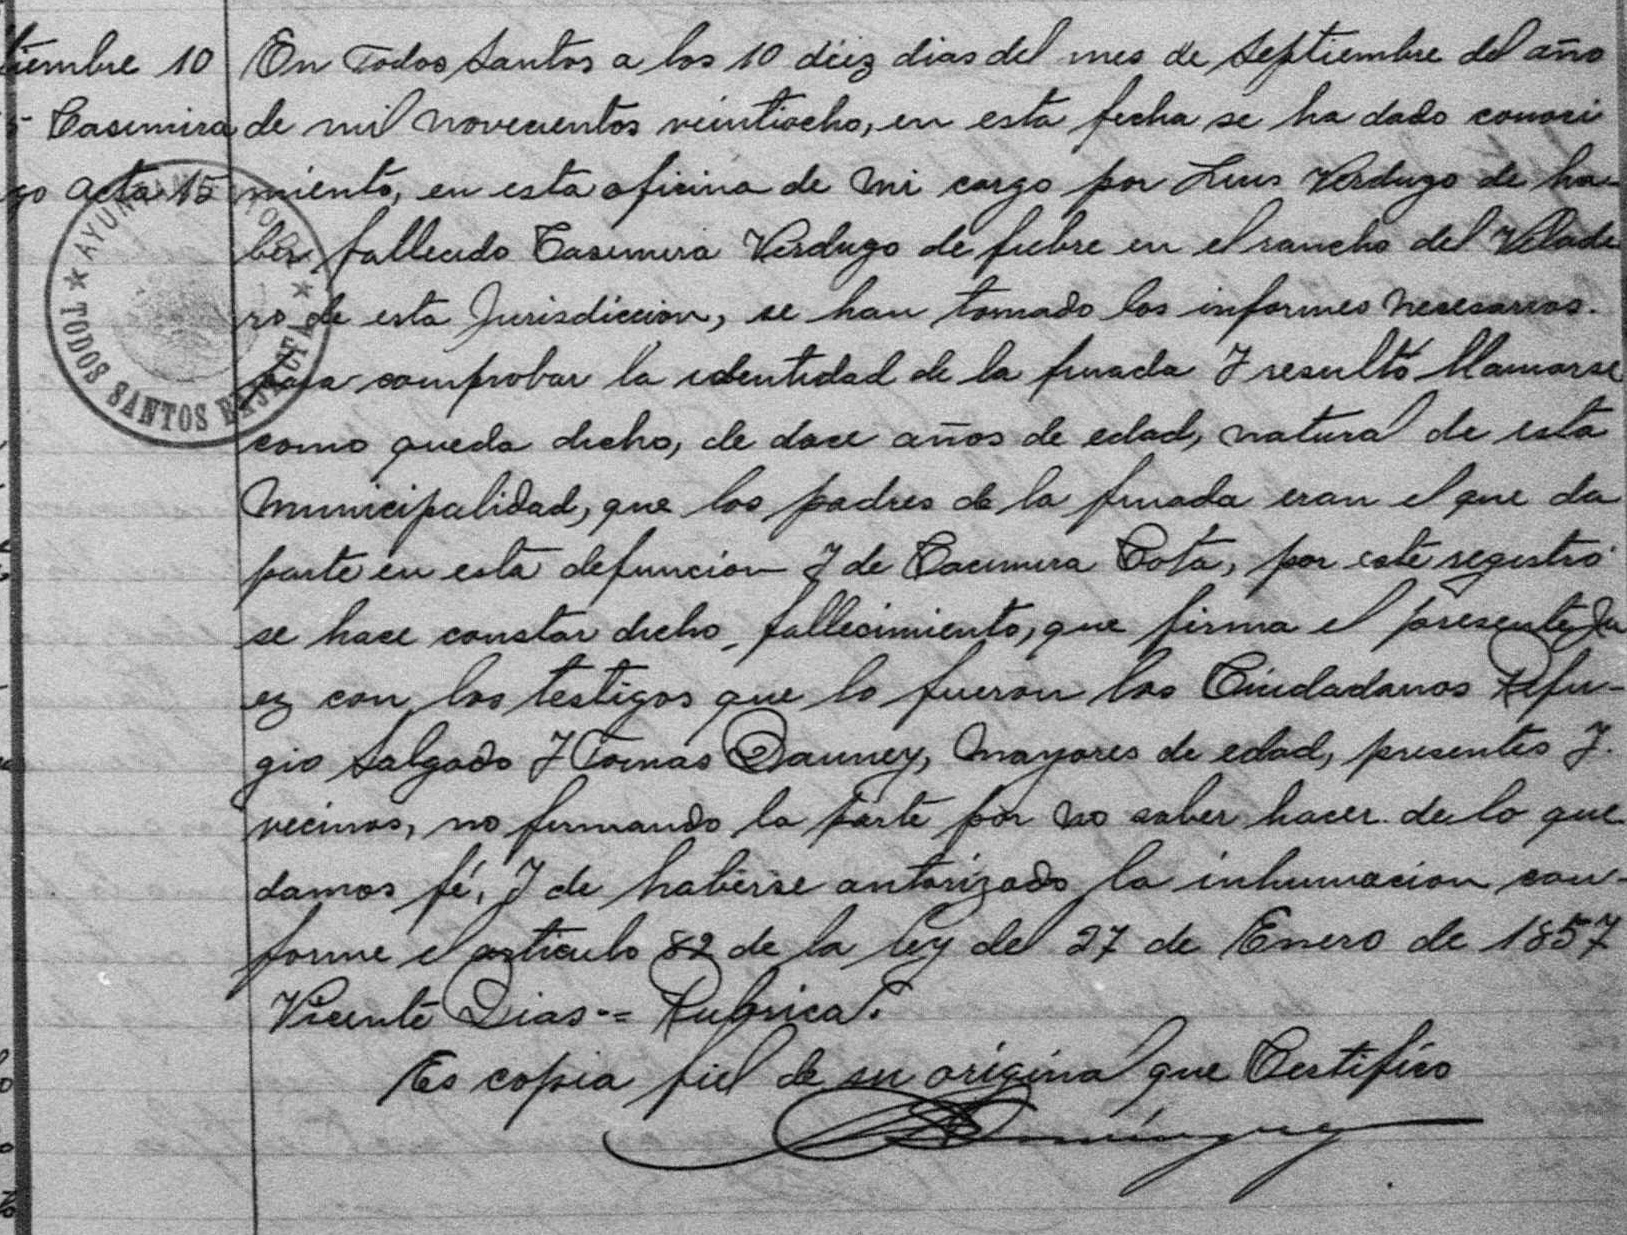 tiembre 10
Casimira
go acta 15
AYUNTAMIENTO
TODOS SANTOS BAJA CFA
En Todos Santos a los 10 diez dias del mes de Septiembre del año
de mil novecientos veintiocho, en esta fecha se ha dado conoci
miento, en esta oficina de mi cargo por Luis Verdugo de ha-
ber fallecido Casimira Verdugo de fiebre en el rancho del Velade
ro de esta Jurisdiccion, se han tomado los informes necesarios.
para comprobar la identidad de la finada Y resultó llamarse
como queda dicho, de doce años de edad, natural de esta
Municipalidad, que los padres de la finada eran el que da
parte en esta defuncion Y de Casimira Cota, por este registro
se hace constar dicho fallecimiento, que firma el presente Ju
ez con los testigos que lo fueron los Ciudadanos Refu-
gio Salgado Y Tomas Dauney, Mayores de edad, presentes Y.
vecinos, no firmando la parte por no saber hacer de lo que
damos fé, Y de haberse autorizado la inhumacion con-
forme el articulo 82 de la ley del 27 de Enero de 1857
Vicente Dias-= Rubrica.
Es copia fiel de su original que Certifico
Domínguez